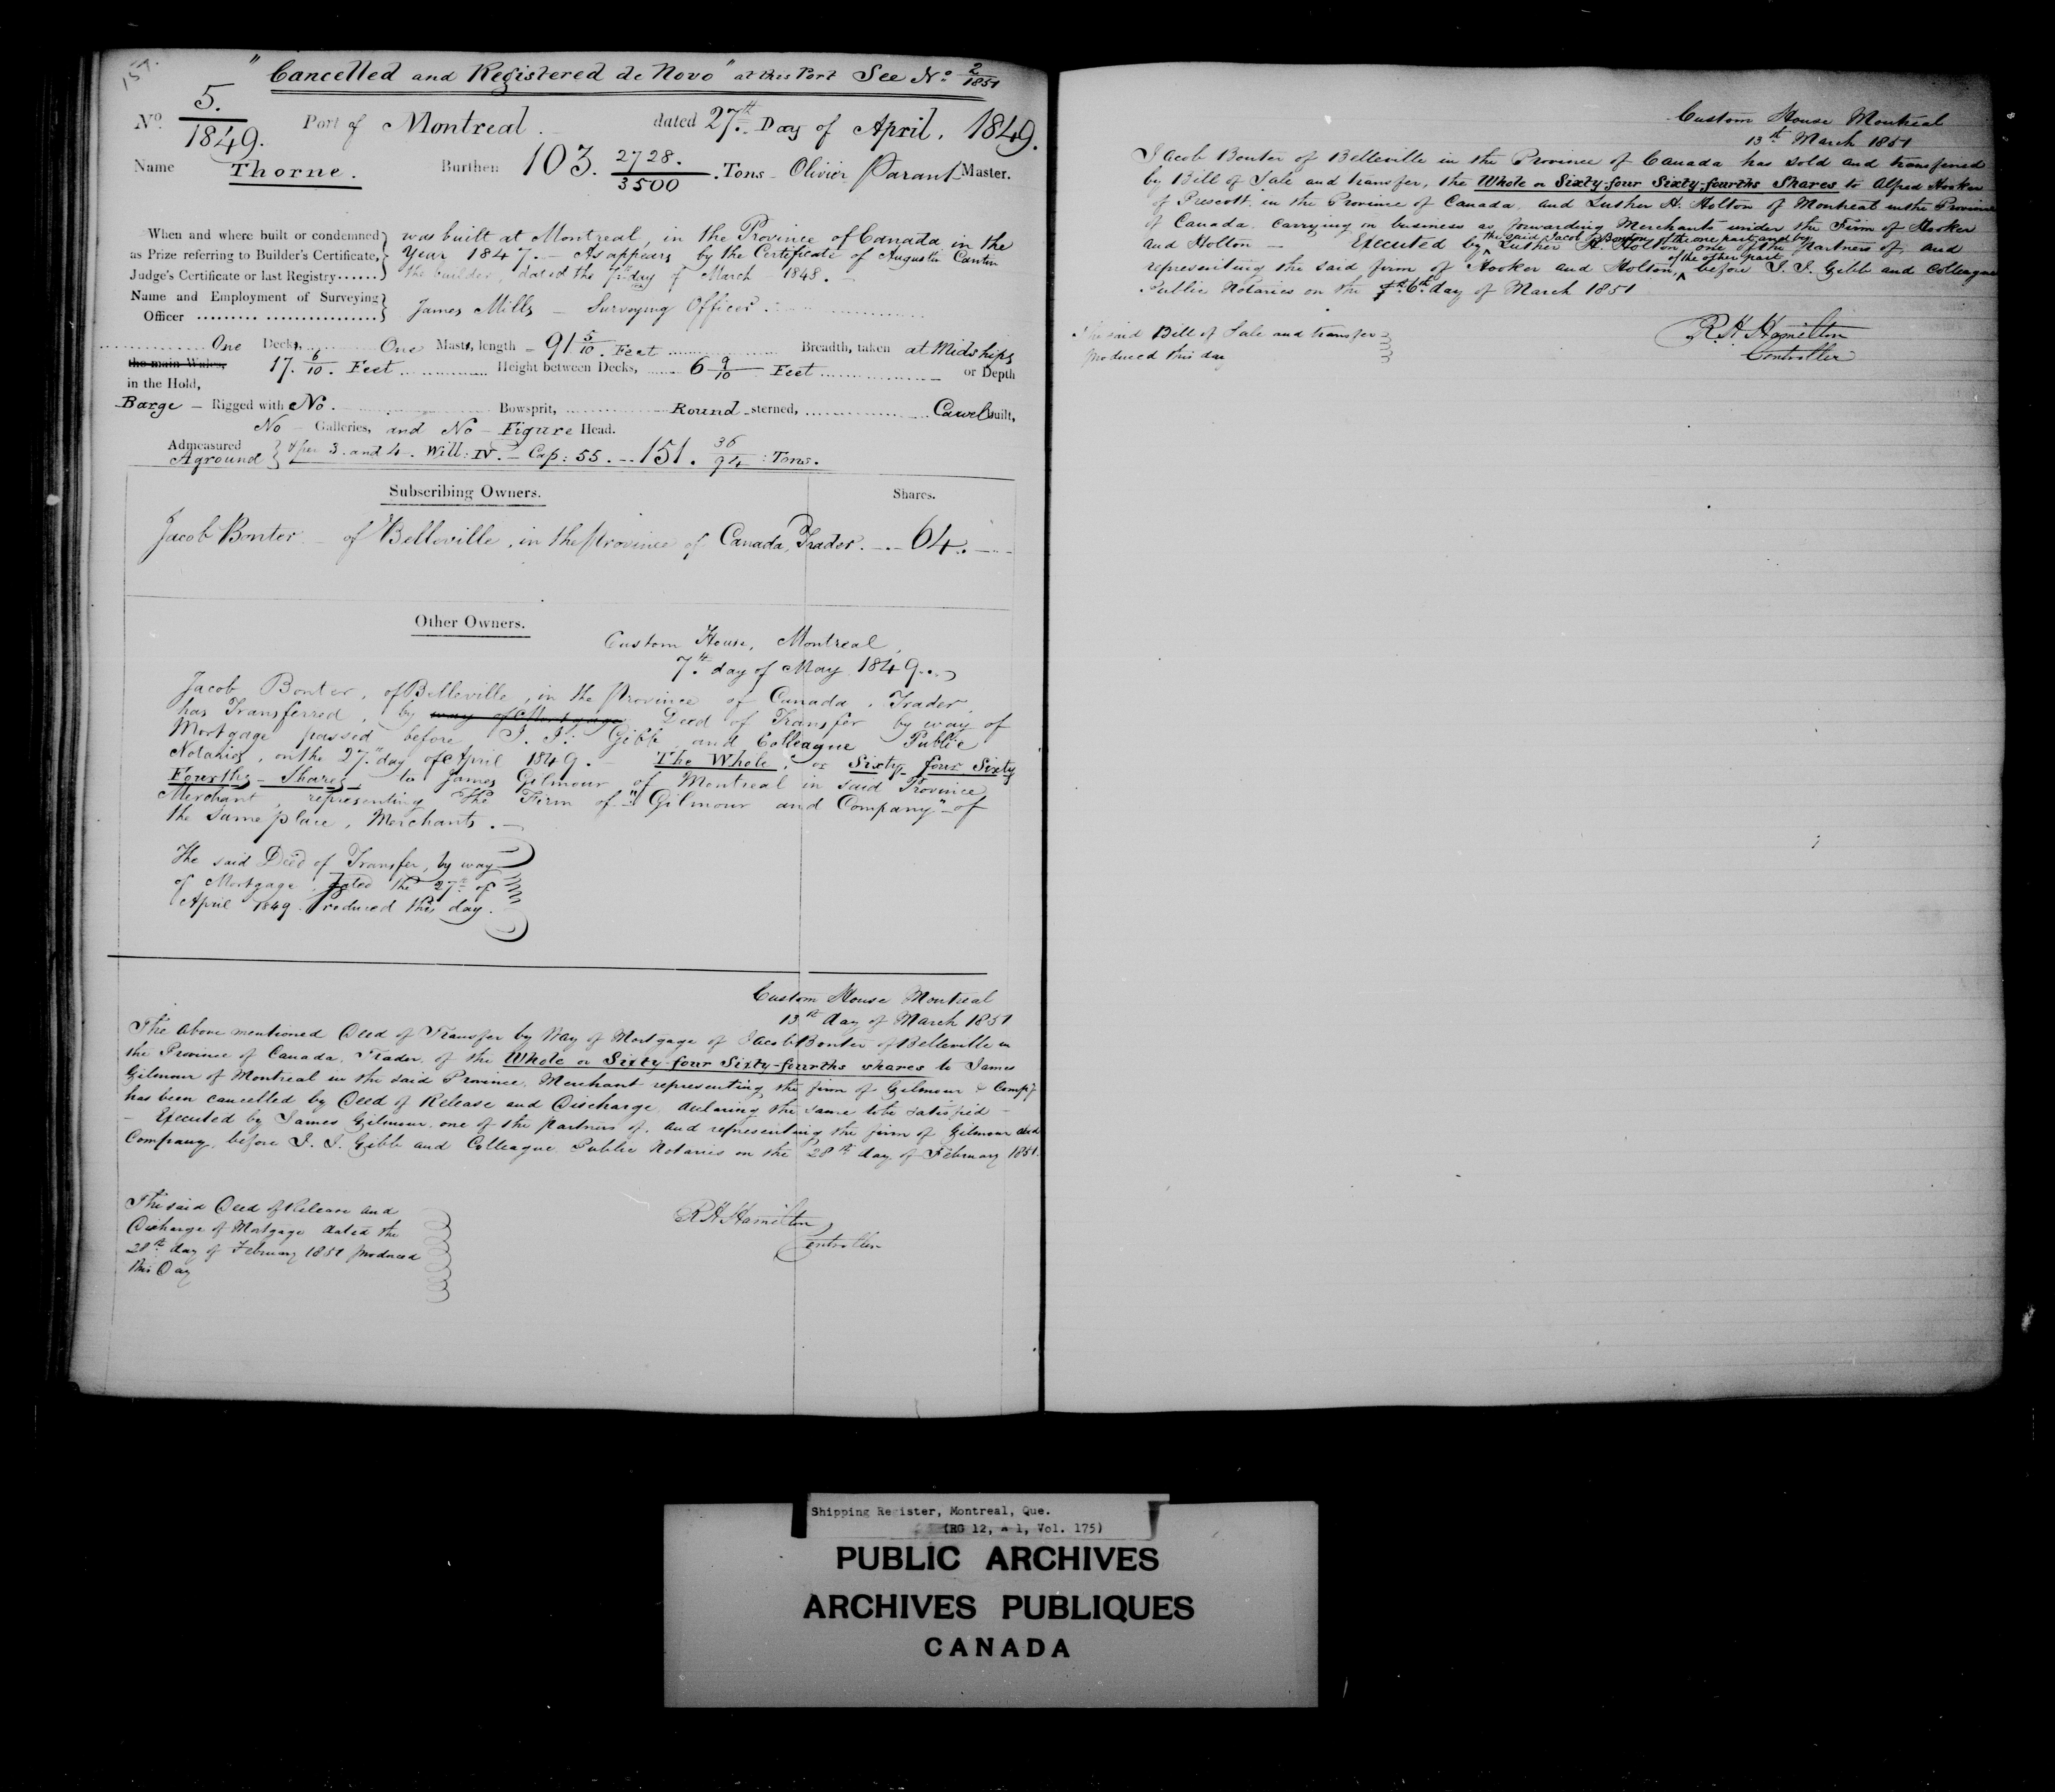 157.
"Cancelled and Registered de Novo" at this Port See No. 2/1851
No. 5./1849. Port of Montreal. dated 27th Day of April, 1849.
Name Thorne. Burthen 103. 2728./3500 Tons - Olivier Parant Master.
When and where built or condemned was built at Montreal, in the Province of Canada in the
as Prize referring to Builder's Certificate, Year 1847. - As appears by the Certificate of Augustin Cantin
Judge's Certificate or last Registry...... the builder, dated the day of March 1848.
Name and Employment of Surveying
Officer James Mills - Surveying Officer.
One Decks, One Masts, length - 91 5/10 Feet Breadth, taken at Midships
the main Wales, 17. 6/10. Feet Height between Decks, 6 9/10 Feet or Depth
in the Hold,
Barge - Rigged with No. Bowsprit, Round sterned, Carvel built,
No - Galleries, and No - Figure Head.
Admeasured
Aground } As per 3. and 4. Will: IV. - Cap: 55. - 151. 36/94 : Tons.
Subscribing Owners. Shares.
Jacob Bonter - of Belleville, in the Province of Canada, Trader. - 64.
Other Owners.
Custom House, Montreal,
7th day of May 1849.
Jacob Bonter, of Belleville, in the Province of Canada, Trader,
has Transferred, by way of Mortgage Deed of Transfer by way of
Mortgage passed before I. I. Gibb and Colleague Public
Notaries, on the 27th day of April 1849. - The Whole, or Sixty four Sixty
Fourths - Shares, to James Gilmour of Montreal in said Province
Merchant, representing the Firm of "Gilmour and Company" of
the same place, Merchants.
The said Deed of Transfer, by way
of Mortgage, dated the 27th of
April 1849. Produced this day.
Custom House Montreal
13th day of March 1851
The above mentioned Deed of Transfer by Way of Mortgage of Jacob Bonter of Belleville in
the Province of Canada, Trader, of the Whole or Sixty-four Sixty-fourths shares to James
Gilmour of Montreal in the said Province, Merchant representing the firm of Gilmour & Compy
has been cancelled by Deed of Release and Discharge, declaring the same to be satisfied -
- Executed by James Gilmour, one of the partners of, and representing the firm of Gilmour and
Company, before I. I. Gibb and Colleague Public Notaries on the 28th day of February 1851.
The said Deed of Release and
Discharge of Mortgage dated the
28th day of February 1851 produced
this Day
R H Hamilton
Controller
Custom House Montreal
13th March 1851
Jacob Bonter of Belleville in the Province of Canada has sold and transferred
by Bill of Sale and transfer, the Whole or Sixty-four Sixty-fourths Shares to Alfred Hooker
of Prescott, in the Province of Canada, and Luther H. Holton of Montreal in the Province
of Canada, Carrying on business as forwarding Merchants under the Firm of Hooker
the said Jacob Bonter of the one part, and by
and Holton - Executed by Luther H. Holton, one of the partners of, and
of the other part
representing the said firm of Hooker and Holton, before I. I. Gibb and Colleague
Public Notaries on the 6th day of March 1851
The said Bill of Sale and transfer
produced this day
R H Hamilton
Controller
Shipping Register, Montreal, Que.
(RG 12, A 1, Vol. 175)
PUBLIC ARCHIVES
ARCHIVES PUBLIQUES
CANADA